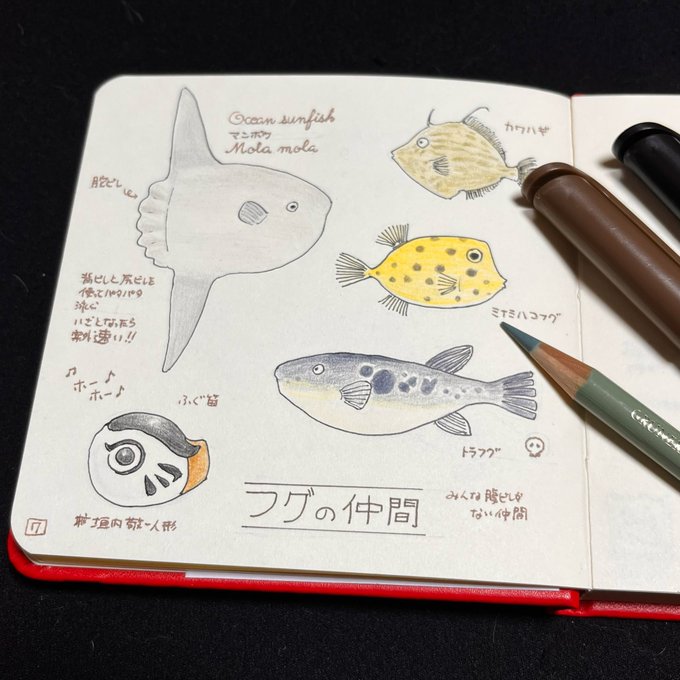 Ocean sunfish
マンボウ
Mola mola
カワハギ
舵ビレ
背ビレと尻ビレを
使ってパタパタ
泳ぐ
いざとなったら
案外速い!!
ミナミハコフグ
♫ホー♪
ホー♪
ふぐ笛
トラフグ
フグの仲間
みんな腹ビレが
ない仲間
垣内敬一人形
7